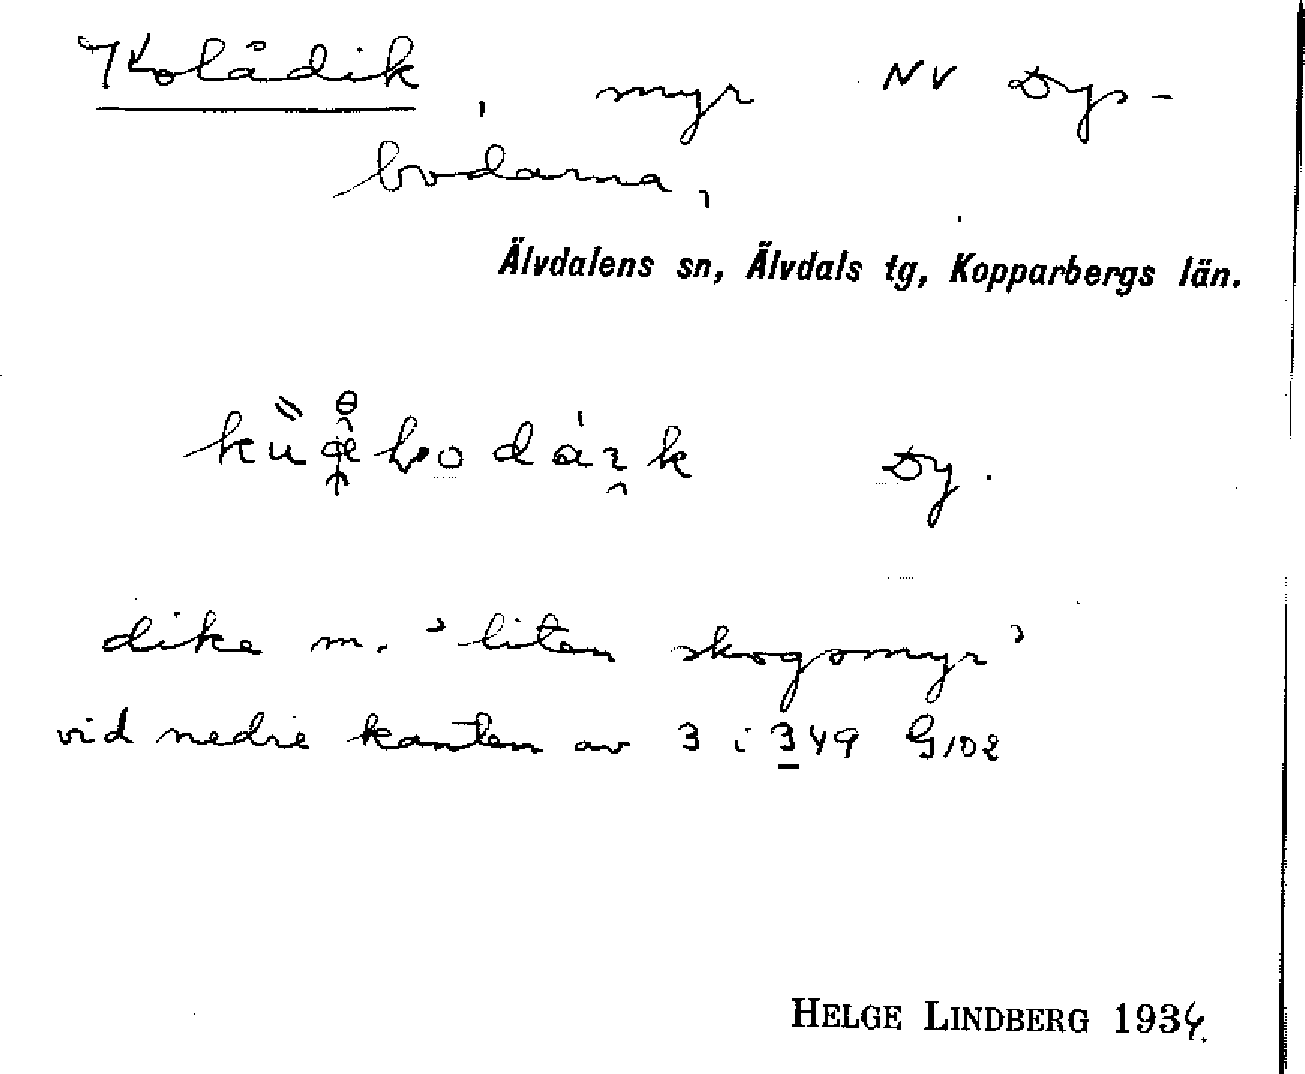 Kolådik, myr NV Dys-
bodarna,
Älvdalens sn, Älvdals tg, Kopparbergs län.
Dy.
dike m. ’liten skogsmyr’
vid nedre kanten av 3 i 349 G102
HELGE LINDBERG 1934.